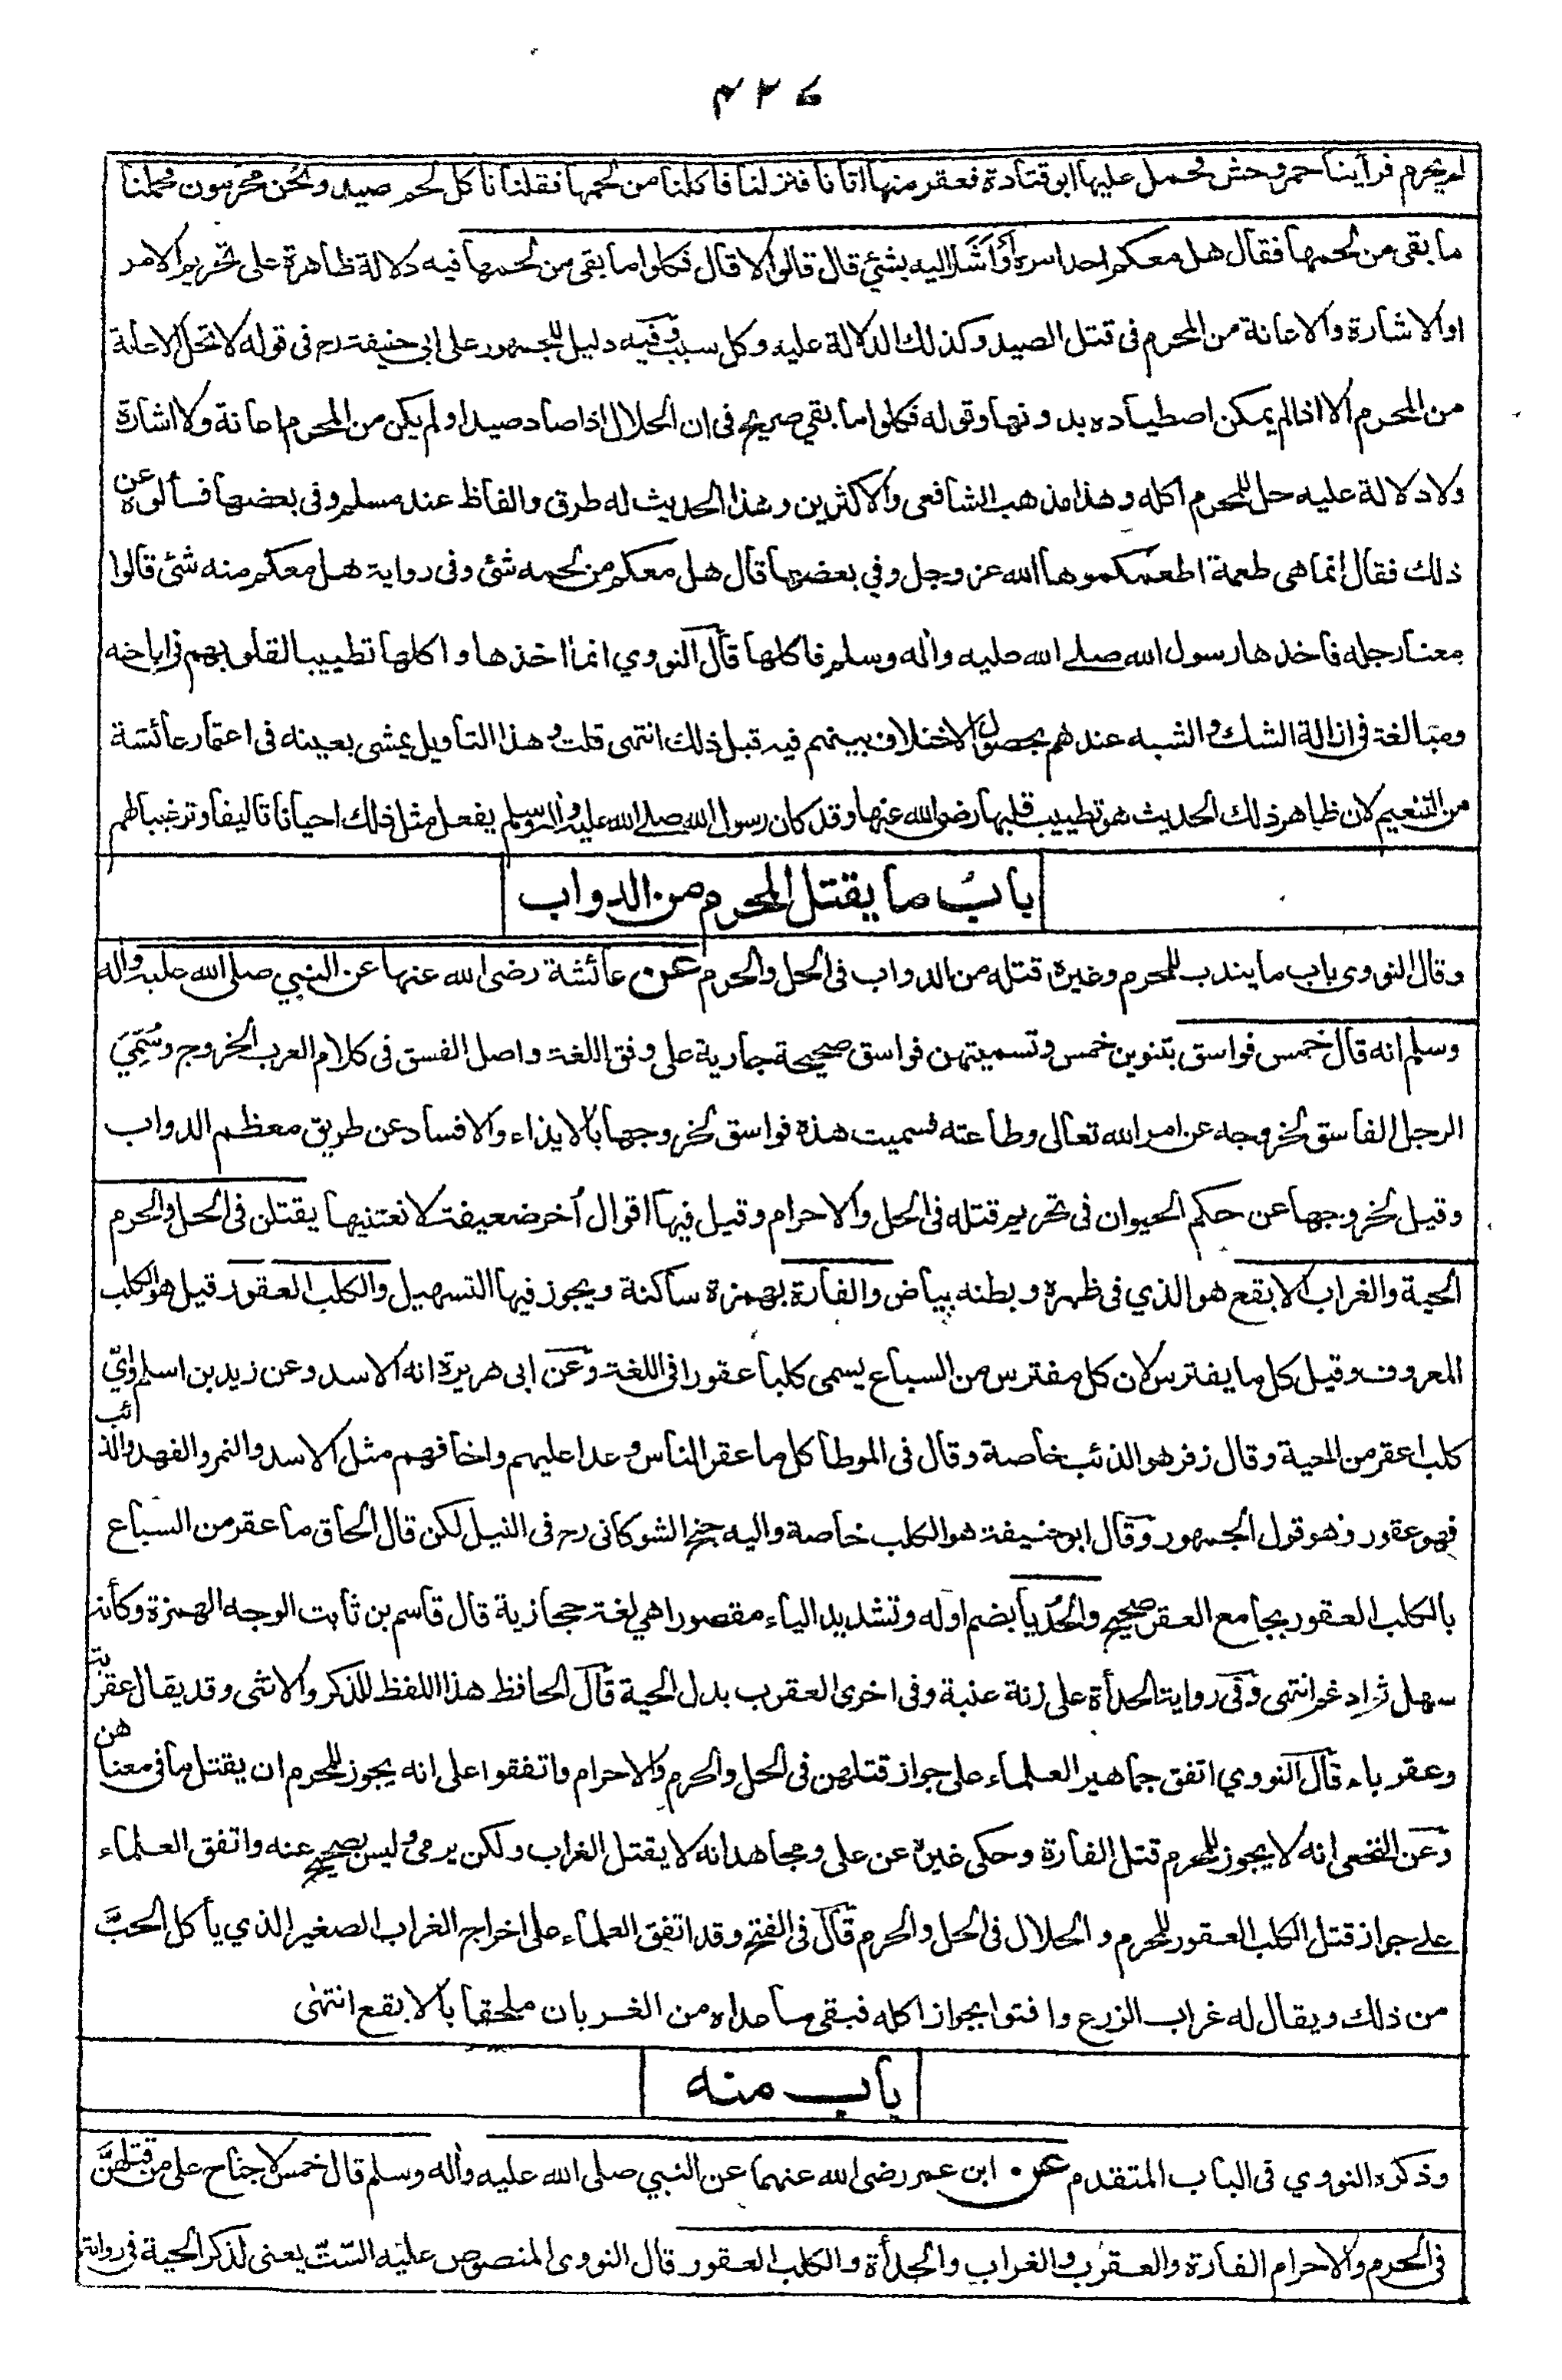 ۴۲۶
لم يحرم فرأينا حمر وحش فحمل عليها ابو قتادة فعقر منها اتانا فنزلنا فاكلنا من لحمها فقلنا نا كل لحم صيد ونحن محرمون فحملنا
ما بقى من لحمها فقال هل معكم احد امره أو أشار اليه بشئ قال قالوا لا قال فكلوا ما بقى من لحمها فيه دلالة ظاهرة على تحريم الامر
او الاشارة والاعانة من المحرم فى قتل الصيد وكذلك الدلالة عليه وكل سبب وفيه دليل للجمهور على ابى حنيفة رح فى قوله لا تحل الاعانة
من المحرم الا اذا لم يمكن اصطياده بدونها وقوله فكلوا ما بقي صريح فى ان الحلال اذا صاد صيدا ولم يكن من المحرم اعانة ولا اشارة
ولا دلالة عليه حل للمحرم اكله وهذا مذهب الشافعى والاكثرين وهذا الحديث له طرق والفاظ عند مسلم وفى بعضها فسألوه عن
ذلك فقال إنما هى طعمة اطعمكموها الله عز وجل وفي بعضها قال هل معكم من لحمه شئ وفى رواية هل معكم منه شئ قالوا
معنا رجله فاخذها رسول الله صلے الله عليه وأله وسلم فاكلها قال النووي انما اخذها واكلها تطييبا لقلوبهم فى اباحته
ومبالغة فى ازالة الشك والشبه عندهم بحصول الاختلاف بينهم فيه قبل ذلك انتهى قلت وهذا التأويل يمشى بعينه فى اعتمار عائشة
من التنعيم لان ظاهر ذلك الحديث هو تطييب قلبها رضى الله عنها وقد كان رسول الله صلے الله عليه وأله وسلم يفعل مثل ذلك احيانا تاليفا وترغيبا لهم
باب ما يقتل المحرم من الدواب
وقال النووى باب ما يندب للمحرم وغيره قتله من الدواب فى الحل والحرم عن عائشة رضى الله عنها عن النبي صلى الله عليه وأله
وسلم انه قال خمس فواسق بتنوين خمس وتسميتهن فواسق صحيحة جارية على وفق اللغة واصل الفسق فى كلام العرب الخروج وسُمِّيَ
الرجل الفاسق لخروجه عن امر الله تعالى وطاعته فسميت هذه فواسق لخروجها بالايذاء والافساد عن طريق معظم الدواب
وقيل لخروجها عن حكم الحيوان فى تحريم قتله فى الحل والاحرام وقيل فيها اقوال أخر ضعيفة لا نعتنيها يقتلن فى الحل والحرم
الحية والغراب الابقع هو الذي فى ظهره وبطنه بياض والفأرة بهمزة ساكنة ويجوز فيها التسهيل والكلب العقور قيل هو الكلب
المعروف وقيل كل ما يفترس لان كل مفترس من السباع يسمى كلبا عقورا فى اللغة وعن ابى هريرة انه الاسد وعن زيد بن اسلم وايّ
كلب اعقر من الحية وقال زفر هو الذئب خاصة وقال فى الموطأ كل ما عقر الناس وعدا عليهم واخافهم مثل الاسد والنمر والفهد والذئب
فهو عقور وهو قول الجمهور وقال ابو حنيفة هو الكلب خاصة واليه جنح الشوكانى رح فى النيل لكن قال الحاق ما عقر من السباع
بالكلب العقور بجامع العقر صحيح والحُدَيا بضم اوله وتشديد الياء مقصورا هي لغة حجازية قال قاسم بن ثابت الوجه الهمزة وكأنه
سهل ثم ادغم انتهى وفى رواية الحدأة على زنة عنبة وفى اخرى العقرب بدل الحية قال الحافظ هذا اللفظ للذكر والانثى وقد يقال عقربة
وعقرباء قال النووي اتفق جماهير العلماء على جواز قتلهن فى الحل والحرم والاحرام واتفقوا على انه يجوز للمحرم ان يقتل ما فى معناهن
وعن النخعى انه لا يجوز للمحرم قتل الفارة وحكى غيره عن على ومجاهد انه لا يقتل الغراب ولكن يرمى وليس بصحيح عنه واتفق العلماء
علے جواز قتل الكلب العقور للمحرم والحلال فى الحل والحرم قال فى الفتح وقد اتفق العلماء على اخراج الغراب الصغير الذي يأكل الحبَّ
من ذلك ويقال له غراب الزرع وافتوا بجواز اكله فبقى ما عداه من الغربان ملحقا بالابقع انتهى
باب منه
وذكره النووي فى الباب المتقدم عن ابن عمر رضى الله عنهما عن النبي صلى الله عليه وأله وسلم قال خمس لا جناح على من قتلهنَّ
فى الحرم والاحرام الفارة والعقرب والغراب والحدأة والكلب العقور قال النووى المنصوص عليه السّتّ يعنى لذكر الحية فى رواية